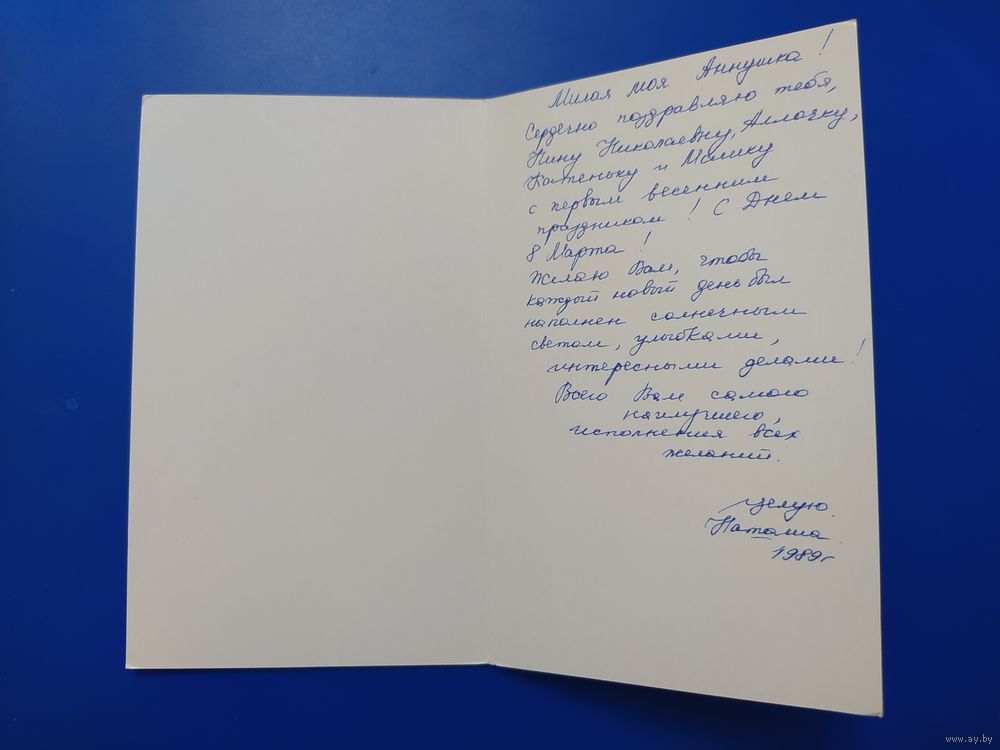 Милая моя Аннушка!
Сердечно поздравляю тебя,
Нину Николаевну, Аллочку,
Катеньку и
с первым весенним
праздником! С Днем
8 Марта!
Желаю Вам, чтобы
каждый новый день был
наполнен солнечным
светом, улыбками,
интересными делами!
Всего Вам самого
наилучшего,
исполнения всех
желаний.
Целую.
Наташа
1989г
www.ay.by